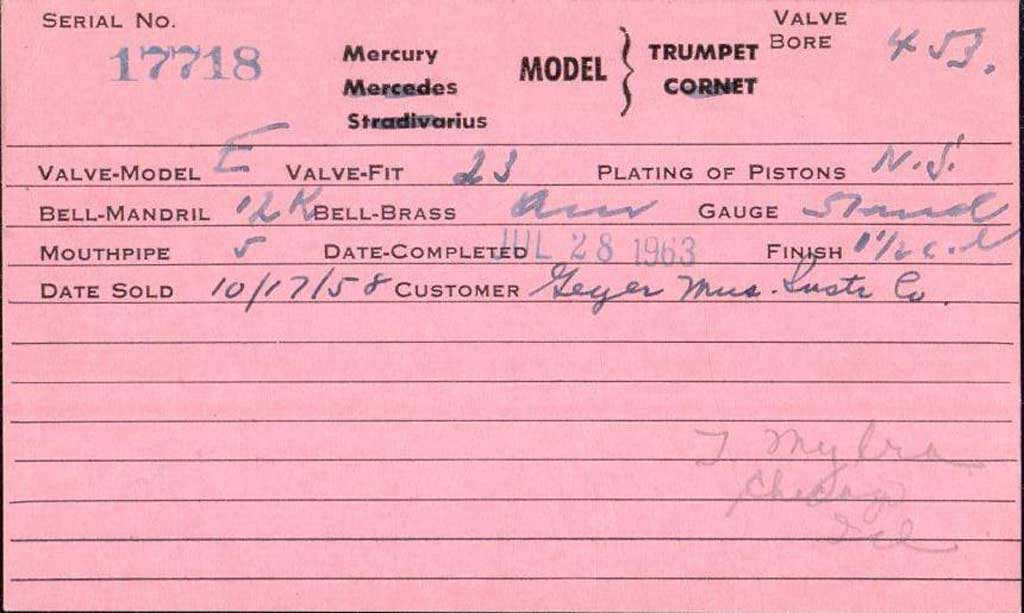 SERIAL NO. 17718 Mercury MODEL TRUMPET VALVE BORE 453.
Mercedes CORNET
Stradivarius
VALVE-MODEL E VALVE-FIT 23 PLATING OF PISTONS N.S.
BELL-MANDRIL 12K BELL-BRASS GAUGE
MOUTHPIPE 5 DATE-COMPLETED JUL 28 1963 FINISH
DATE SOLD 10/17/58 CUSTOMER Geyer Mus. Instr Co.
Chicago
Ill